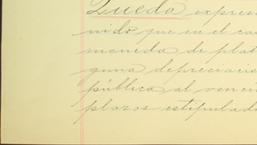 Queda expres
nido que en el ca
moneda de plat
guna depreciació
pública al venci
plazos estipulad